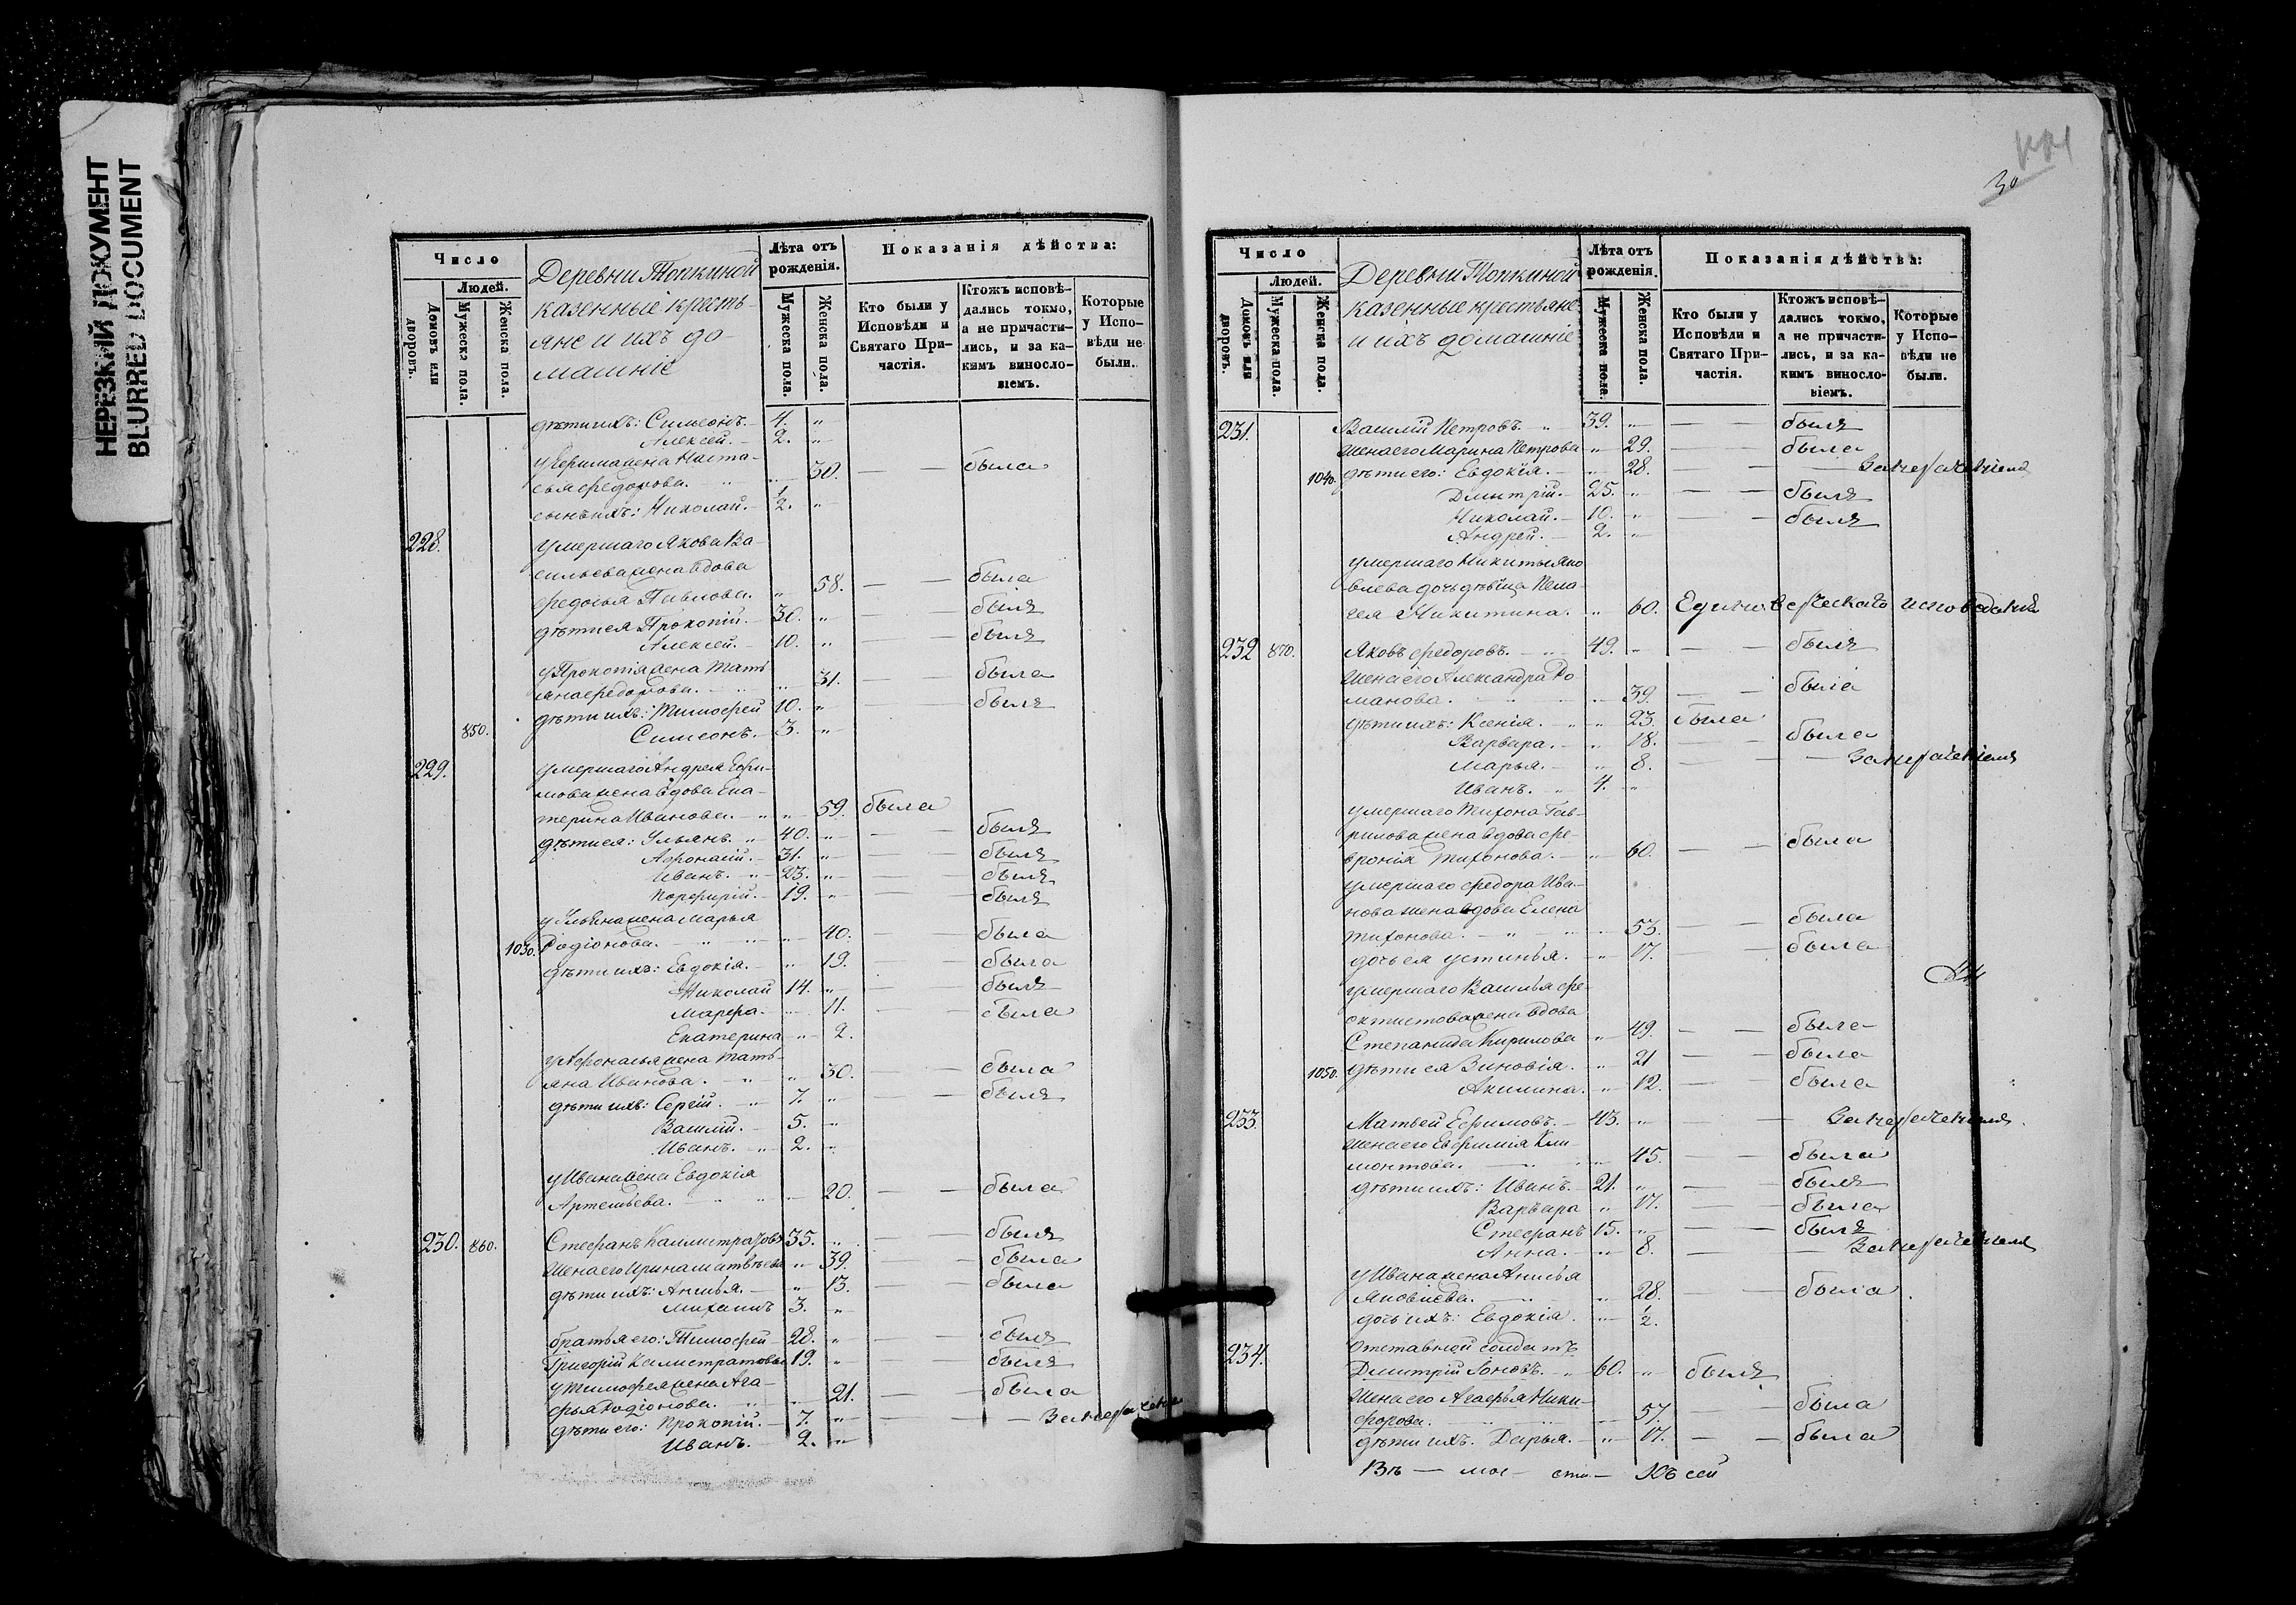 НЕРЕЗКИЙ ДОКУМЕНТ
BLURRED DOCUMENT
Число
Людей.
Домовъ или дворовъ.
Мужеска пола.
Женска пола.
Деревни Топкиной
казенные кресть-
яне и ихъ до-
машніе
Лѣта отъ рожденія.
Мужеска пола.
Женска пола.
Показанія дѣйства:
Кто были у Исповѣди и Святаго Причастія.
Ктожъ исповѣ-
дались токмо,
а не причасти-
лись, и за ка-
кимъ виносло-
віемъ.
Которые у Испо-
вѣди не были.
дѣти ихъ: Симеонъ. 4. "
Алексей. 2. "
у Ефима жена Наста-
сья Федорова. " 30. — — была
сынъ ихъ: Николай. 1/2. "
228. умершаго Якова Ва-
сильева жена вдова
Федосья Павлова. " 58. — — была
дѣти ея Прокопій. 30. " — — былъ
Алексей. 10. " — — былъ
у Прокопія жена Тать-
яна Федорова. " 31. — — была
дѣти ихъ: Тимофей 10. " — — былъ
850. Симеонъ. 3. "
229. умершаго Андрея Ефи-
мова жена вдова Ека-
терина Иванова. " 59. была
дѣти ея: Ульянъ. 40. " — — былъ
Афонасій. 31. " — — былъ
Иванъ. 23. " — — былъ
Порфирій. 19. " — — былъ
у Ульяна жена Марья
1030. Родіонова. " 40. — — была
дѣти ихъ: Евдокія. " 19. — — была
Николай 14. " — — былъ
Марфа. " 11. — — была
Екатерина " 2.
у Афонасья жена Тать-
яна Иванова. " 30. — — была
дѣти ихъ: Сергій. 7. " — — былъ
Василій. 5. "
Иванъ. 2. "
у Ивана жена Евдокія
Артемьева. " 20. — — была
230. 860. Стефанъ Каллистратовъ 35. " — — былъ
Жена его Ирина Матвѣева " 39. — — была
дѣти ихъ: Анисья. " 13. — — была
Михаилъ 3. "
братья его: Тимофей 28. " — — былъ
Григорій Калистратовы 19. " — — былъ
у Тимофея жена Ага-
фья Родіонова. " 21. — — была
дѣти его: Прокопій. 7. " — — —
Иванъ. 2. "
30
Число
Людей.
Домовъ или дворовъ.
Мужеска пола.
Женска пола.
Деревни Топкиной
казенные крестьяне
и ихъ домашніе
Лѣта отъ рожденія.
Мужеска пола.
Женска пола.
Показанія дѣйства:
Кто были у Исповѣди и Святаго Причастія.
Ктожъ исповѣ-
дались токмо,
а не причасти-
лись, и за ка-
кимъ виносло-
віемъ.
Которые у Испо-
вѣди не были.
231. Василій Петровъ. 39. " — — былъ
Жена его Марина Петрова " 29. — — была
1040. дѣти его: Евдокія. " 28. — —
Дмитрій. 25. " — — былъ
Николай. 10. " — — былъ
Андрей. 2. "
умершаго Никиты Яко
влева дочь дѣвица Пела
гея Никитина. " 60.
232 870. Яковъ Федоровъ. 49. " — — былъ
Жена его Александра Ро
манова. " 39. — — была
дѣти ихъ: Ксенія. " 23. была
Варвара. " 18. — — была
Марья. " 8. — —
Иванъ. 4. "
умершаго Тихона Гав-
рилова жена вдова Фе-
вронія Тихонова. " 60. — — была
умершаго Федора Ива-
нова жена вдова Елена
Тихонова. " 53. — — была
дочь ея Устинья. " 17. — была
умершаго Василья Фе-
октистова жена вдова
Степанида Кирилова " 49. — — была
1050. дѣти ея Зиновія. " 21 — — была
Акилина. " 12. — была
233. Матвей Ефимовъ. 43. " — —
Жена его Евфимія Кли-
монтова. " 45. — — была
дѣти ихъ: Иванъ. 21. " — — былъ
Варвара " 17. — — была
Стефанъ 15. " — — былъ
Анна. " 8. — —
у Ивана жена Анисья
Яковлева. " 28. — — была
дочь ихъ: Евдокія. " 1/2.
234. Отставной солдатъ
Дмитрій Іоновъ. 60. " былъ
Жена его Агафья Ники-
форова. " 57. — — была
дѣти ихъ. Дарья. " 17. — — была